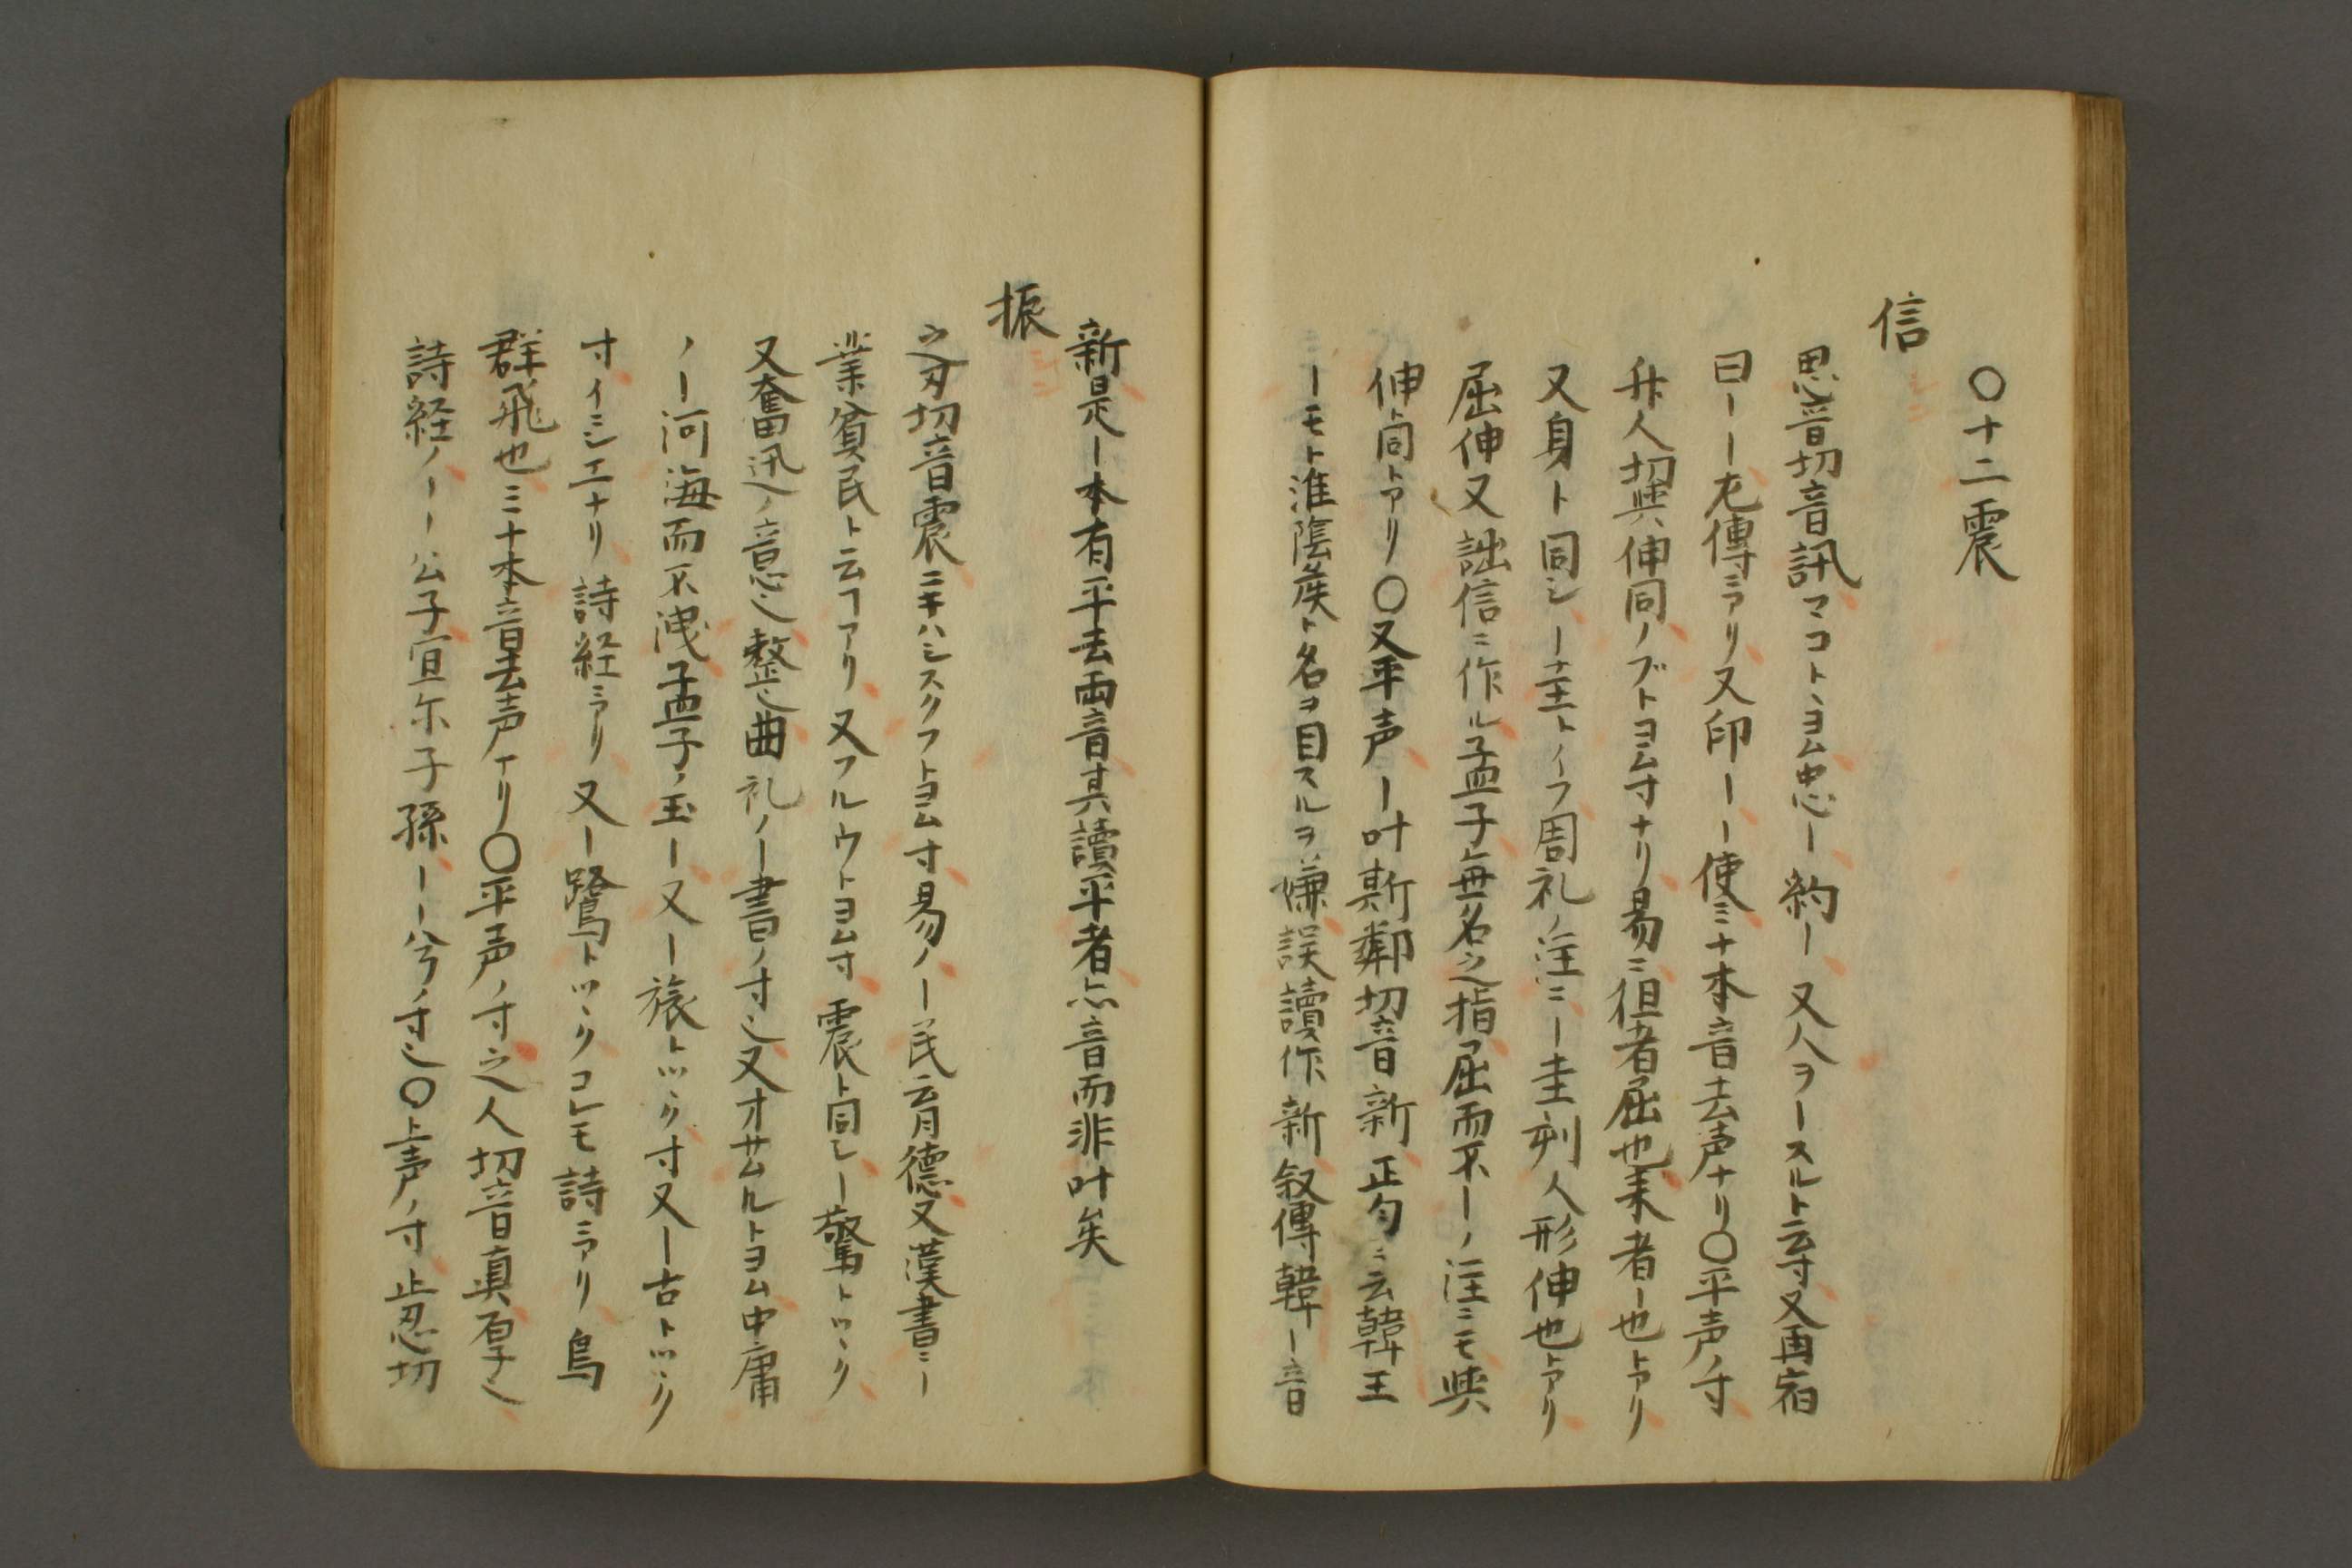 〇十二震
信
思晉切音訊マコトヽヨム忠ー約ー又人ヲースルト云寸又再宿
曰ーー左傳ニアリ又印ーー使ミナ本音去声ナリ〇平声ノ寸
升人切與伸同ノブトヨム寸ナリ易ニ徃者屈也来者ー也トアリ
又身ト同シー圭トイフ周礼ノ注ニー圭刻人形伸也トアリ
屈伸又詘信ニ作ル孟子無名之指屈而不ーノ注ニモ與
伸ト同トアリ〇又平声ー叶斯鄰切音新正勻ニ云韓王
ーモト淮陰矦ト名ヲ目スルヲ嫌誤讀作新叙傳韓ー音
新是ー本有平去両音其讀平者亦音而非叶矣
振
之刃切音震ニキハシスクフトヨム寸易ノー民云育德又漢書ニー
業貧民ト云フアリ又フルウトヨム寸震ト同シー驚トツヽク
又奮迅ノ意也整也曲礼ノー書ノ寸也又オサムルトヨム中庸
ノー河海而不洩孟子ノ玉ー又ー旅トツヽク寸又ー古トツヽク
寸イニシエナリ詩経ニアリ又ー鷺トツヽクコレモ詩ニアリ鳥
群飛也ミナ本音去声ナリ〇平声ノ寸之人切音真厚也
詩経ノーー公子宜尓子孫ーー兮ノ寸也〇上声ノ寸止忍切